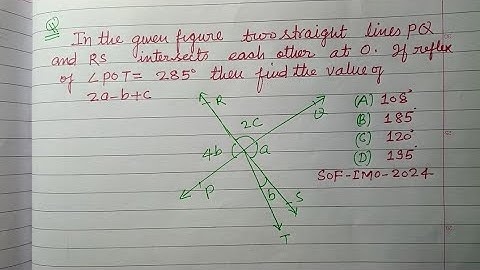 Q
In the given figure two straight lines PQ
and RS intersects each other at O. If reflex
of ∠POT= 285° then find the value of
2a-b+c
R
2C
Q
4b
a
P
b
S
T
(A) 108°
(B) 185°
(C) 120°
(D) 135°
SOF-IMO-2024